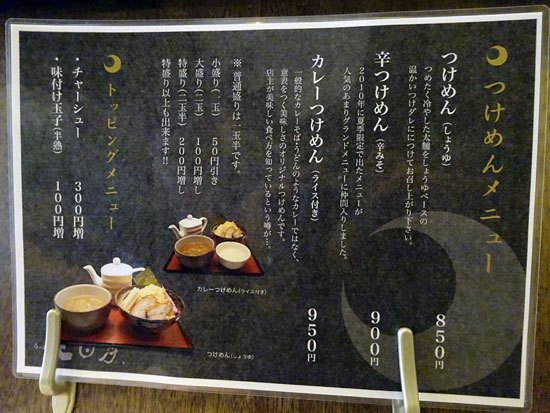 つけめんメニュー
つけめん（しょうゆ）
つめたく冷やした太麺をしょうゆベースの
温かいつけダレにつけてお召し上がり下さい。
850円
辛つけめん（辛みそ）
2010年に夏季限定で出たメニューが
人気のあまりグランドメニューに仲間入りしました。
900円
カレーつけめん（ライス付き）
一般的なカレーそば・うどんのようなカレーではなく、
意表をつく美味しさのオリジナルつけめんです。
店主が美味しい食べ方を知っているという噂が…。
950円
※普通盛りは一玉半です。
小盛り（一玉） 50円引き
大盛り（二玉） 100円増し
特盛り（二玉半） 200円増し
特盛り以上も出来ます!!
トッピングメニュー
・チャーシュー 300円増
・味付け玉子（半熟） 100円増
カレーつけめん（ライス付き）
つけめん（しょうゆ）